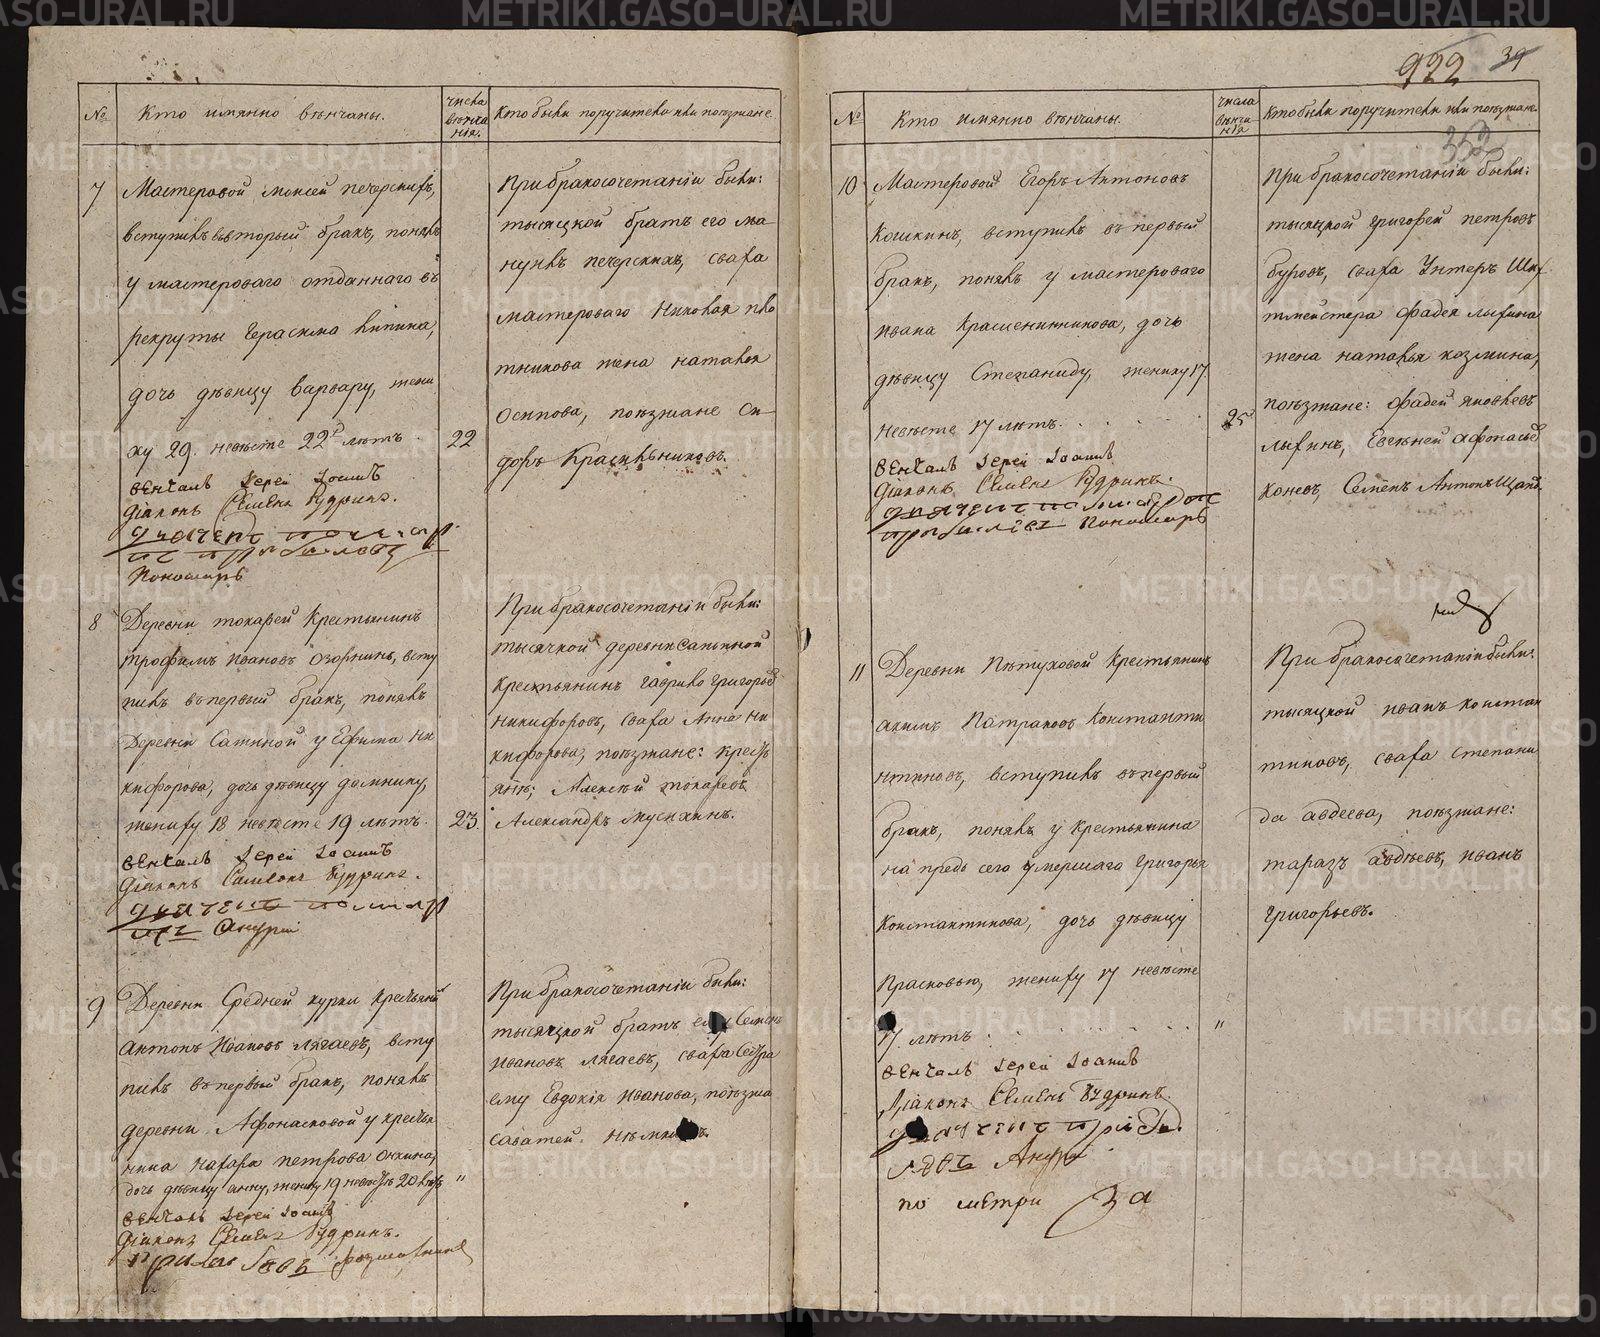 922 39
353
№ Кто имянно вѣнчаны. числа вѣнча нія. Кто были поручители или поѣзжане.
7 Мастеровой Моисей Печерскихъ,
вступилъ вовторый бракъ, понялъ
у мастероваго отданнаго въ
рекруты Герасима Кипина,
дочь дѣвицу Варвару, жени
ху 29. невѣсте 22 лѣтъ. 22
вѣнчалъ Іерей Іоаннъ
діаконъ Семенъ Кудринъ.
Пономарь
При бракосочетаніи были:
тысяцкой братъ его Ма
нуилъ Печерскихъ, сваха
мастероваго Николая Пло
тникова жена Наталья
Осипова, поѣзжане Си
доръ Красильниковъ.
8 Деревни Токарей Крестьянинъ
Трофимъ Ивановъ Озорнинъ, всту
пилъ въ первый бракъ, понялъ
Деревни Сапиной у Ефима Ни
кифорова, дочь дѣвицу Домнику,
жениху 18 невѣсте 19 лѣтъ. 23.
вѣнчалъ Іерей Іоаннъ
діаконъ Семенъ Кудринъ.
Андрей
При бракосочетаніи были:
тысяцкой деревни Сапиной
Крестьянинъ Гаврило Григорьевъ
Никифоровъ, сваха Анна Ни
кифорова, поѣзжане: Кресть
янѣ; Алексѣй Токаревъ
Александръ Мусихинъ.
9 Деревни Средней Курьи Крестьянинъ
Антонъ Ивановъ Лягаевъ, всту
пилъ въ первый бракъ, понялъ
деревни Афонасковой у крестья
нина Захара Петрова Онхина,
дочь дѣвицу Анну, жениху 19 невѣсте 20 лѣтъ "
вѣнчалъ Іерей Іоаннъ
діаконъ Семенъ Кудринъ.
При бракосочетаніи были:
тысяцкой братъ его Семенъ
Ивановъ Лягаевъ, сваха Сестра
ему Евдокія Иванова, поѣзжа
Саватей
№ Кто имянно вѣнчаны. числа вѣнча нія Кто были поручители или поѣзжане.
10 Мастеровой Егоръ Антоновъ
Кошкинъ, вступилъ въ первый
бракъ, понялъ у мастероваго
Ивана Крашенинникова, дочь
дѣвицу Степаниду, жениху 17.
невѣсте 17 лѣтъ. 25
вѣнчалъ Іерей Іоаннъ
діаконъ Семенъ Кудринъ.
Пономарь
При бракосочетаніи были:
тысяцкой Григорей Петровъ
Буровъ, сваха Унтеръ Ших
тмейстера Фадея Лыхина
жена Наталья Козмина,
поѣзжане: Фадей Яковлевъ
Лыхинъ, Евгеней Афонасьев
Коневъ, Семенъ Антонъ
11 Деревни Пѣтуховой Крестьянинъ
Акимъ Патраковъ Константи
нтиновъ, вступилъ въ первый
бракъ, понялъ у Крестьянина
на предь сего умершаго Григорья
Константинова, дочь дѣвицу
Прасковью, жениху 17 невѣсте
17. лѣтъ. "
вѣнчалъ Іерей Іоаннъ
Діаконъ Семенъ Кудринъ.
по метри За
При бракосочетаніи были:
тысяцкой Иванъ Констан
тиновъ, сваха Степани
да Авдеева, поѣзжане:
Таразъ Авдѣевъ, Иванъ
Григорьевъ.
METRIKI.GASO-URAL.RU